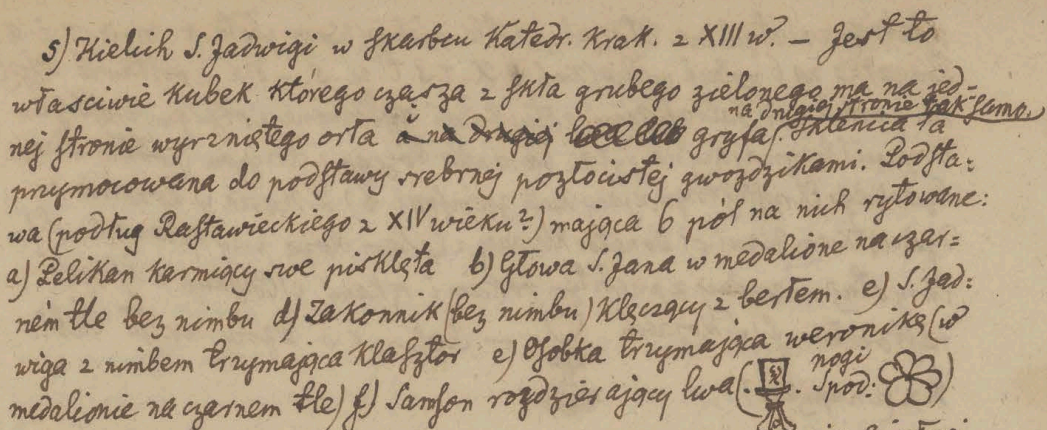 5) Kielich S. Jadwigi w skarbcu Katedr. Krak. z XIII w. – Jest to
właściwie kubek którego czasza z szkła grubego zielonego ma na jed-
na drugiej stronie tak samo.
nej stronie wyrzniętego orła a na drugiej gryfa. Sklenica ta
przymocowana do podstawy srebrnej pozłocistej gwozdzikami. Podsta:
wa (podług Rastawieckiego z XIV wieku?) mająca 6 pól na nich rytowane:
a) Pelikan karmiący swe pisklęta b) Głowa S. Jana w medalione na czar=
ném tle bez nimbu d) Zakonnik (bez nimbu) klęczący z berłem. e) S. Jad:
wiga z nimbem trzymająca klasztor e) Osobka trzymająca weronikę (w
medalionie na czarnem tle) f) Samson rozdzierający lwa (. nogi
spód: )